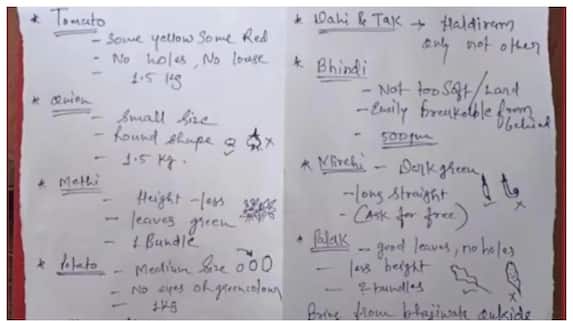 * Tomato
- Some yellow Some Red
- No holes, No loose
- 1.5 kg
* onion
- small size
- Round shape
- 1.5 kg.
* Methi
- Height - less
- leaves green
- 1 Bundle
* Potato - Medium Size
- No eyes or green colour
- 1 kg
* Dahi & Tak → Haldiram
only not other
* Bhindi
- Not too soft / hard
- Easily breakable from
behind
- 500gm
* Mirchi - Dark green
- long straight
- (Ask for free)
* Palak - good leaves, no holes
- less height
- 2 bundles
Bring from bhajiwala outside